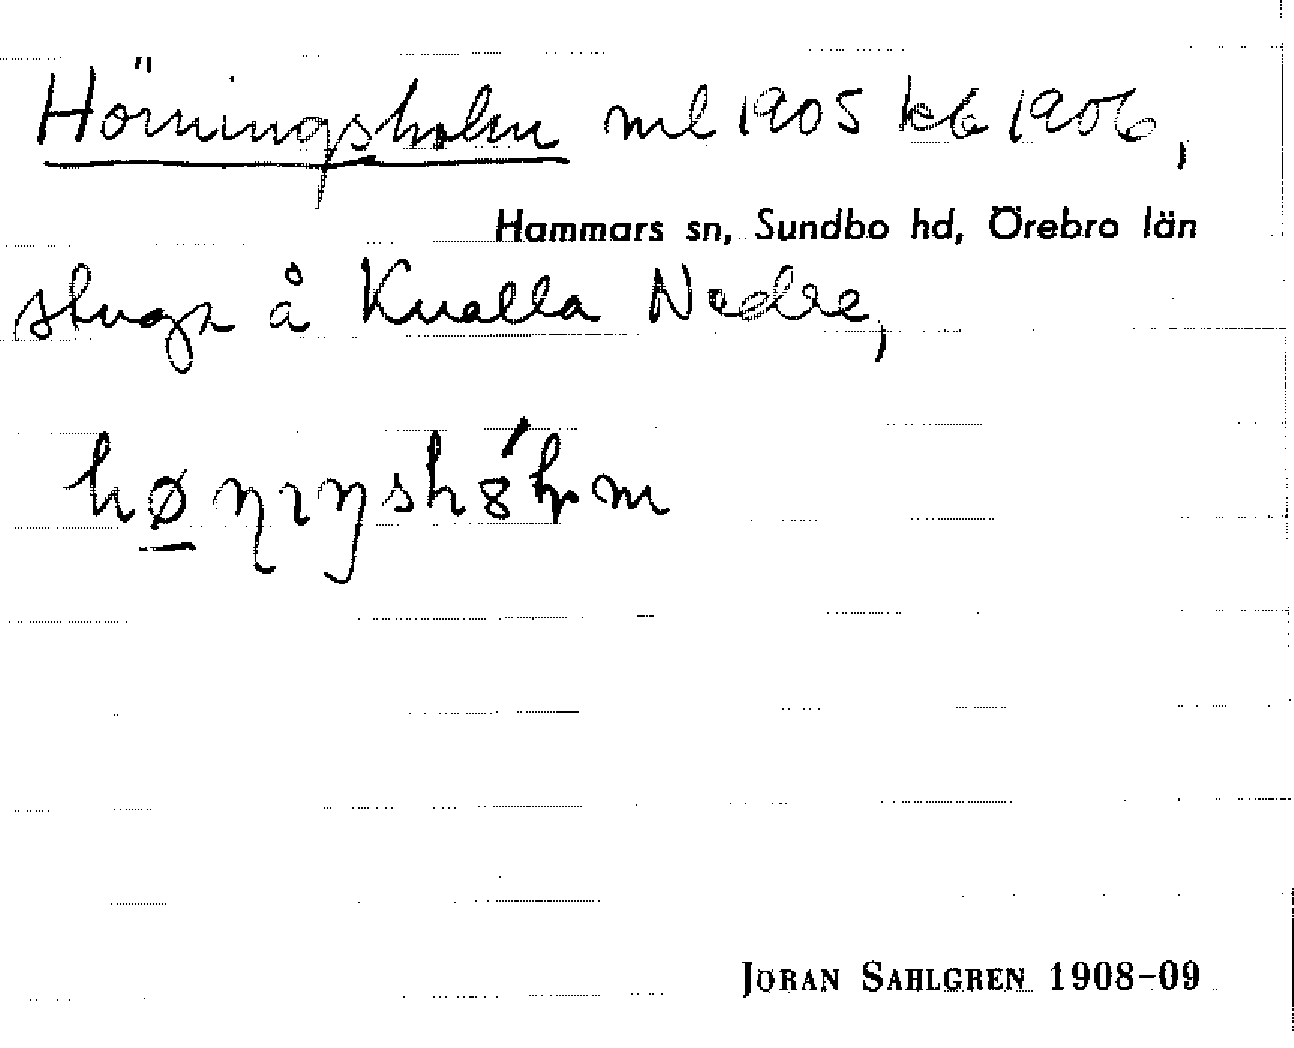 Hörningsholm ml 1905 kb 1906,
Hammars sn, Sundbo hd, Örebro län
stuga å Knalla Nedre,
JÖRAN SAHLGREN 1908-09